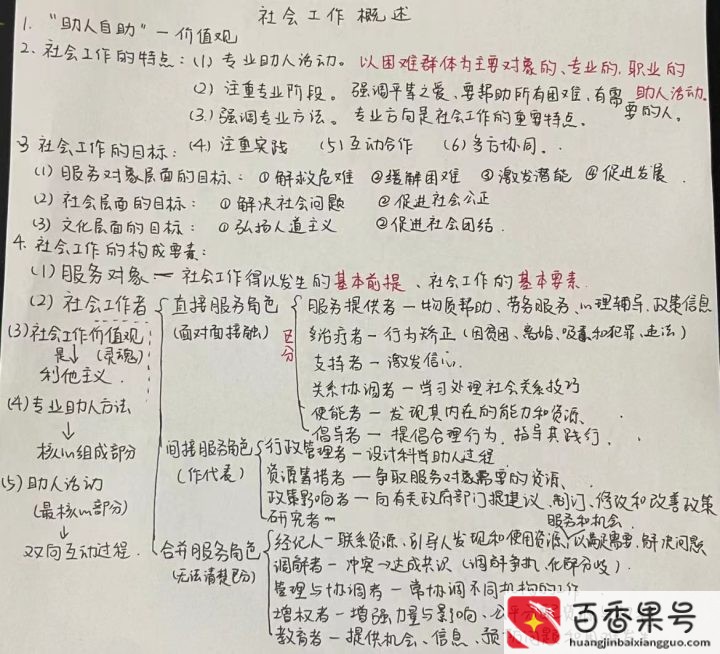 社会工作概述
1. “助人自助”—价值观
2. 社会工作的特点：(1) 专业助人活动。以困难群体为主要对象的、专业的、职业的
助人活动。
(2) 注重专业阶段。强调平等之爱、要帮助所有困难、有需
要的人。
(3) 强调专业方法。专业方向是社会工作的重要特点。
(4) 注重实践 (5) 互动合作 (6) 多方协同。
3 社会工作的目标：
(1) 服务对象层面的目标：①解救危难 ②缓解困难 ③激发潜能 ④促进发展.
(2) 社会层面的目标：①解决社会问题 ②促进社会公正
(3) 文化层面的目标：①弘扬人道主义 ②促进社会团结.
4. 社会工作的构成要素：
(1) 服务对象—社会工作得以发生的基本前提、社会工作的基本要素.
(2) 社会工作者
直接服务角色
(面对面接触)
区分
服务提供者—物质帮助、劳务服务、心理辅导、政策信息
治疗者—行为矫正(因贫困、离婚、吸毒和犯罪、违法)
支持者—激发信心.
关系协调者—学习处理社会关系技巧
使能者—发现其内在的能力和资源.
倡导者—提倡合理行为，指导其践行.
间接服务角色
(作代表)
行政管理者—设计科学助人过程
资源筹措者—争取服务对象需要的资源.
政策影响者—向有关政府部门提建议、制订、修改和改善政策
研究者
服务和机会.
合并服务角色
(无法清楚区分)
经纪人—联系资源、引导人发现和使用资源，以满足需要、解决问题
调解者—冲突→达成共识(调解争执、化解分歧).
管理与协调者—常协调不同机构的工作
增权者—增强力量与影响、公平
教育者—提供机会、信息、预防问题
(3) 社会工作价值观
是↓(灵魂)
利他主义.
(4) 专业助人方法
↓
核心组成部分
(5) 助人活动
(最核心部分)
↓
双向互动过程.
百香果号
huangjinbaixiangguo.com